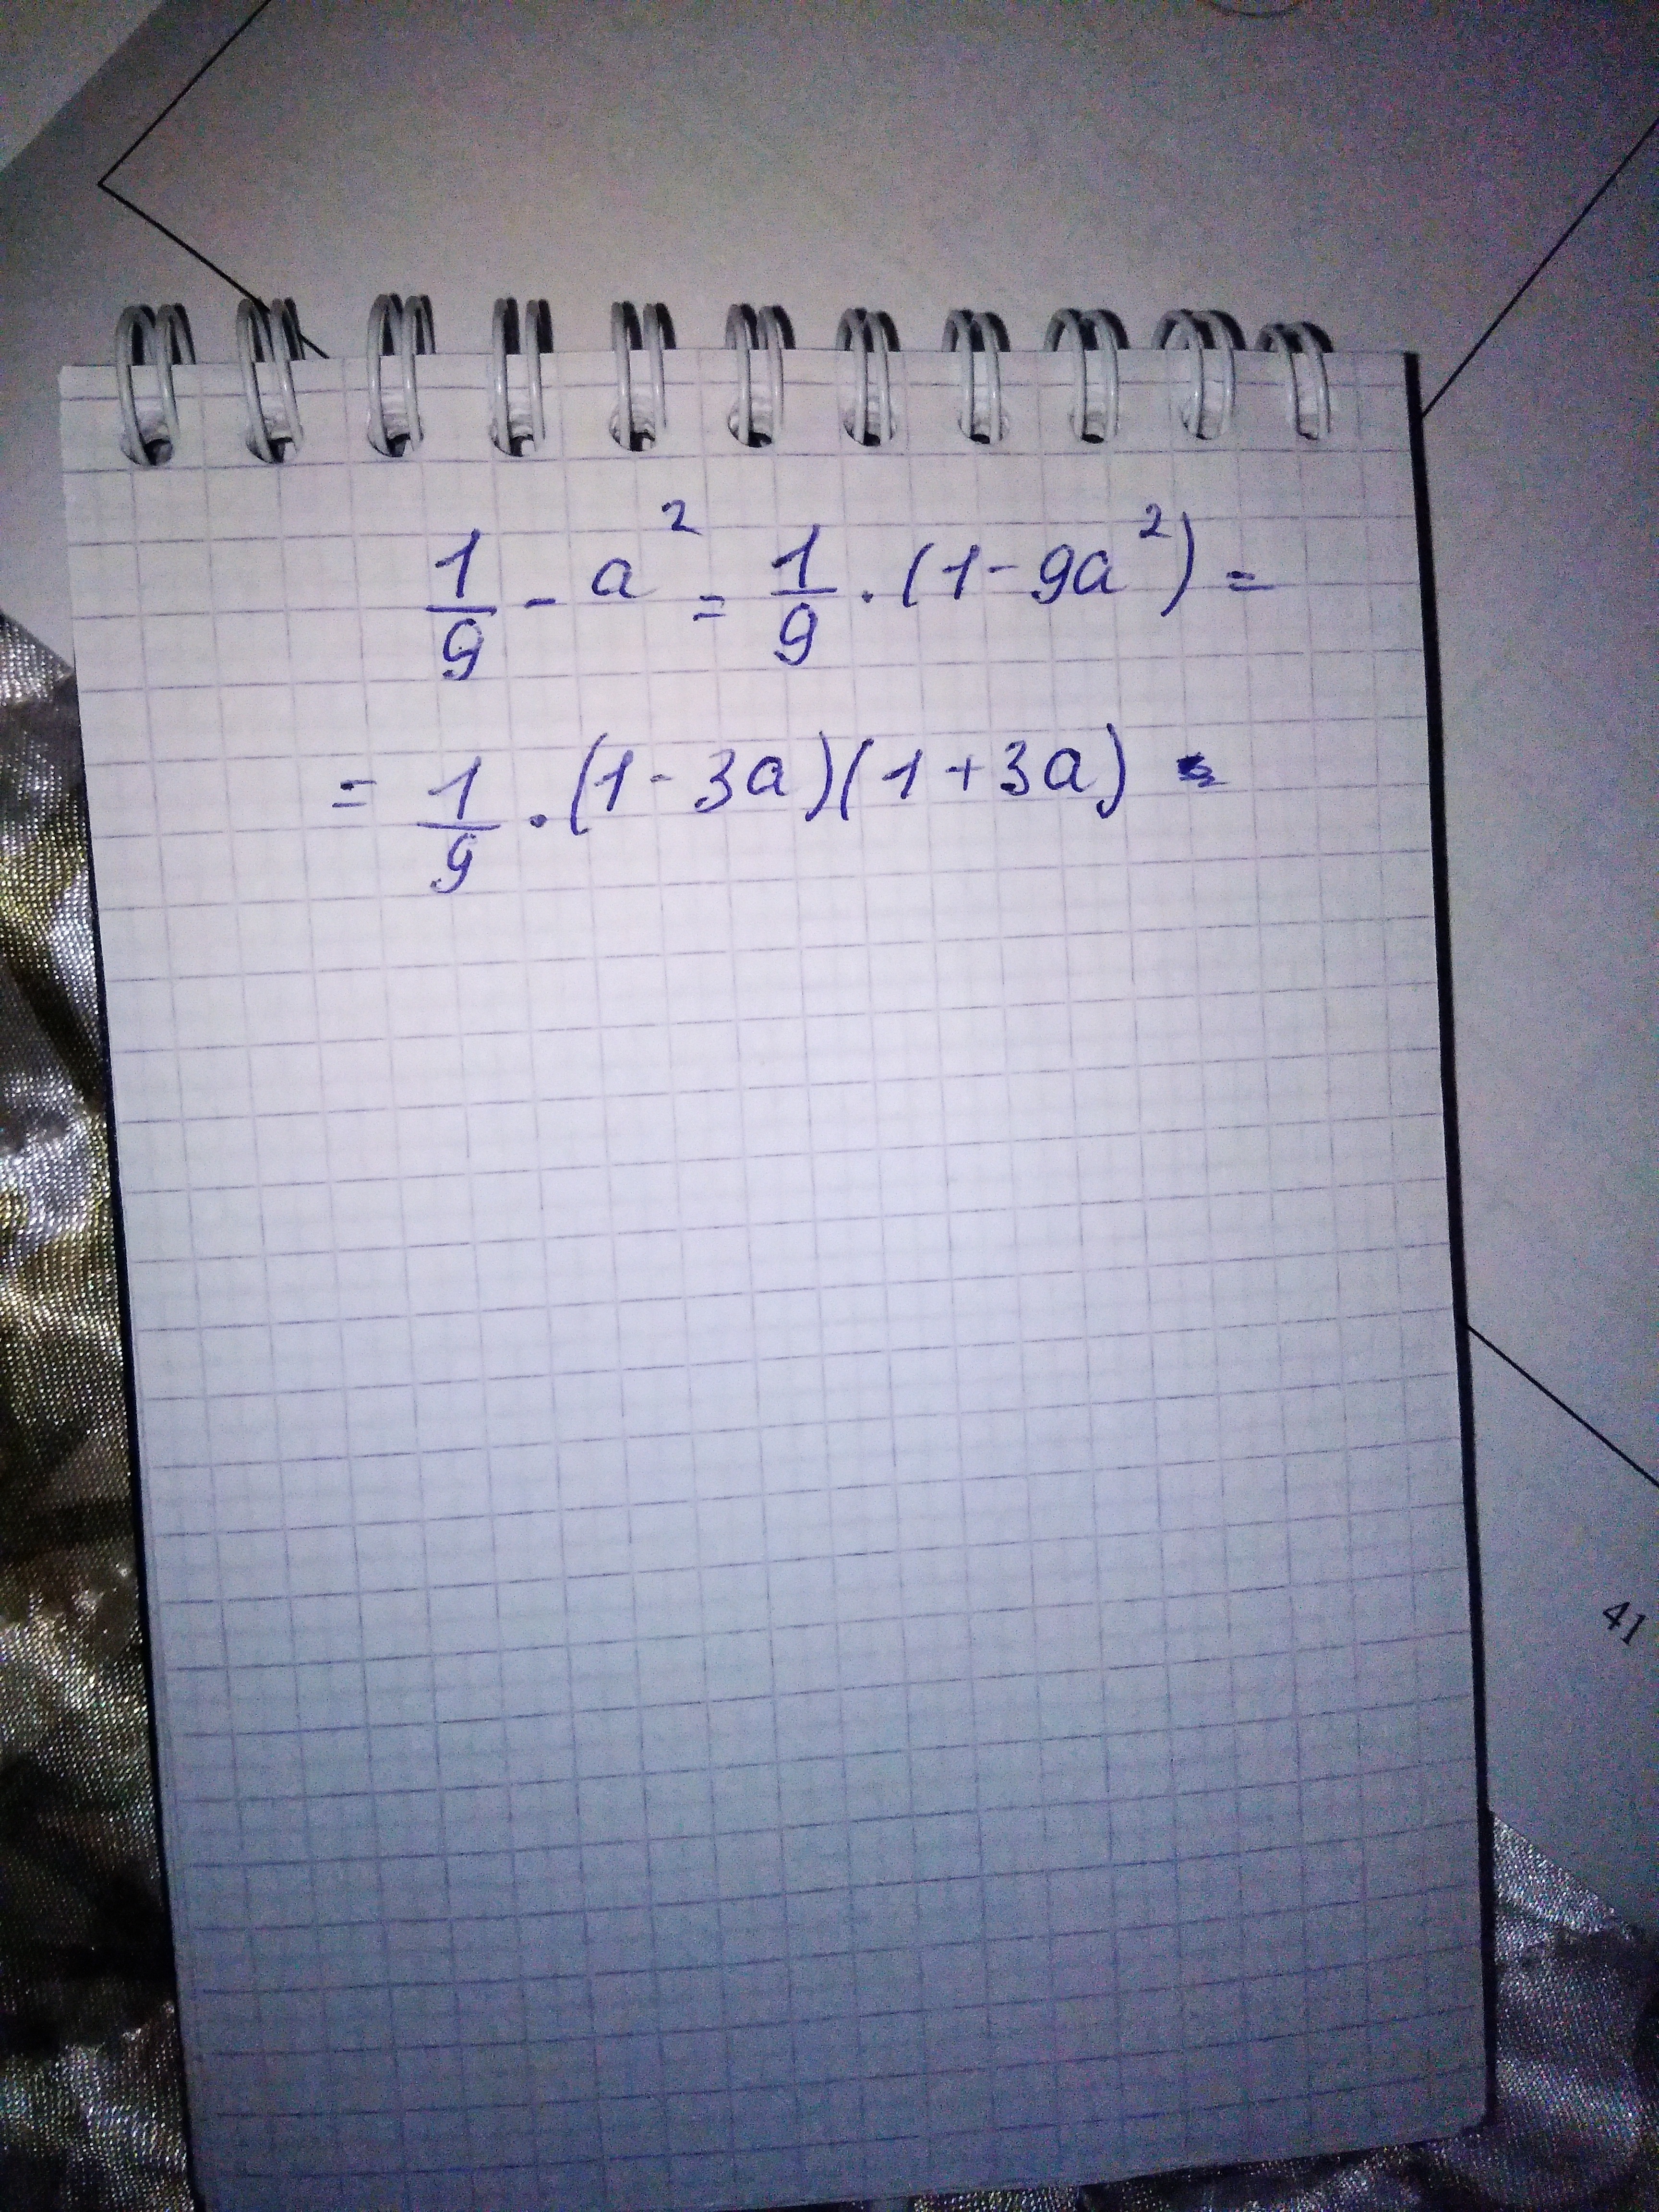 1/9 - a² = 1/9 · (1 - 9a²) =
= 1/9 · (1 - 3a)(1 + 3a)
41